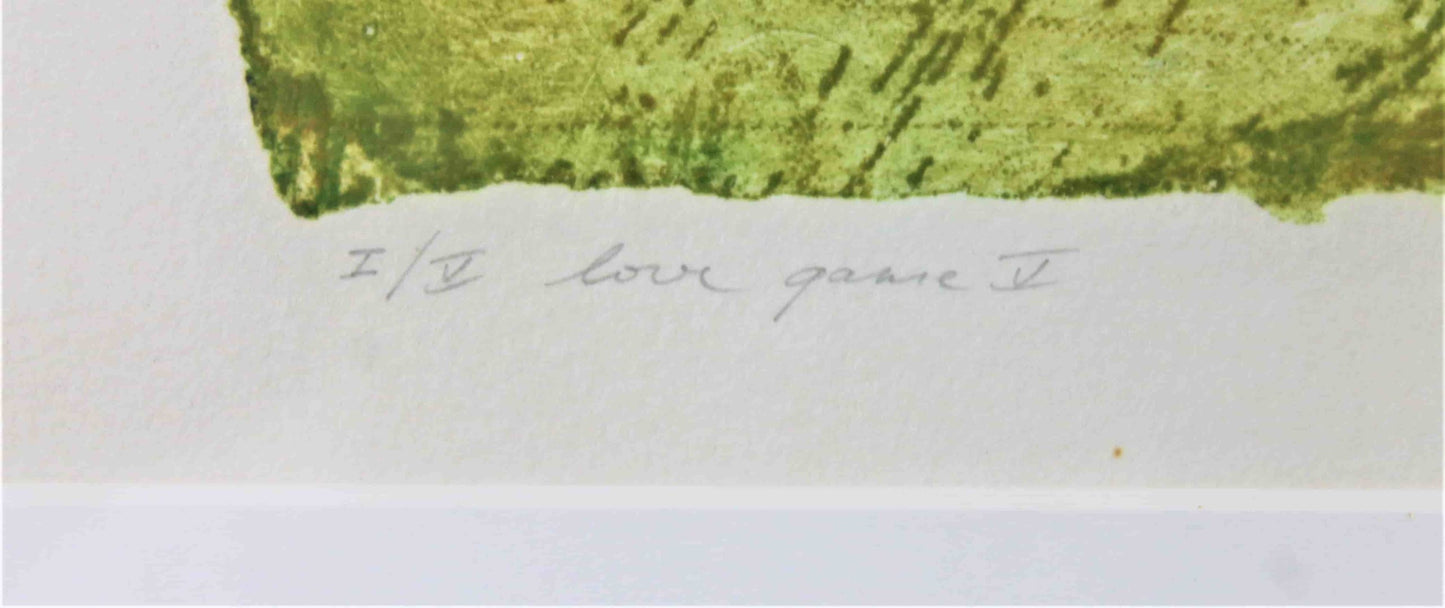 I/V love game V